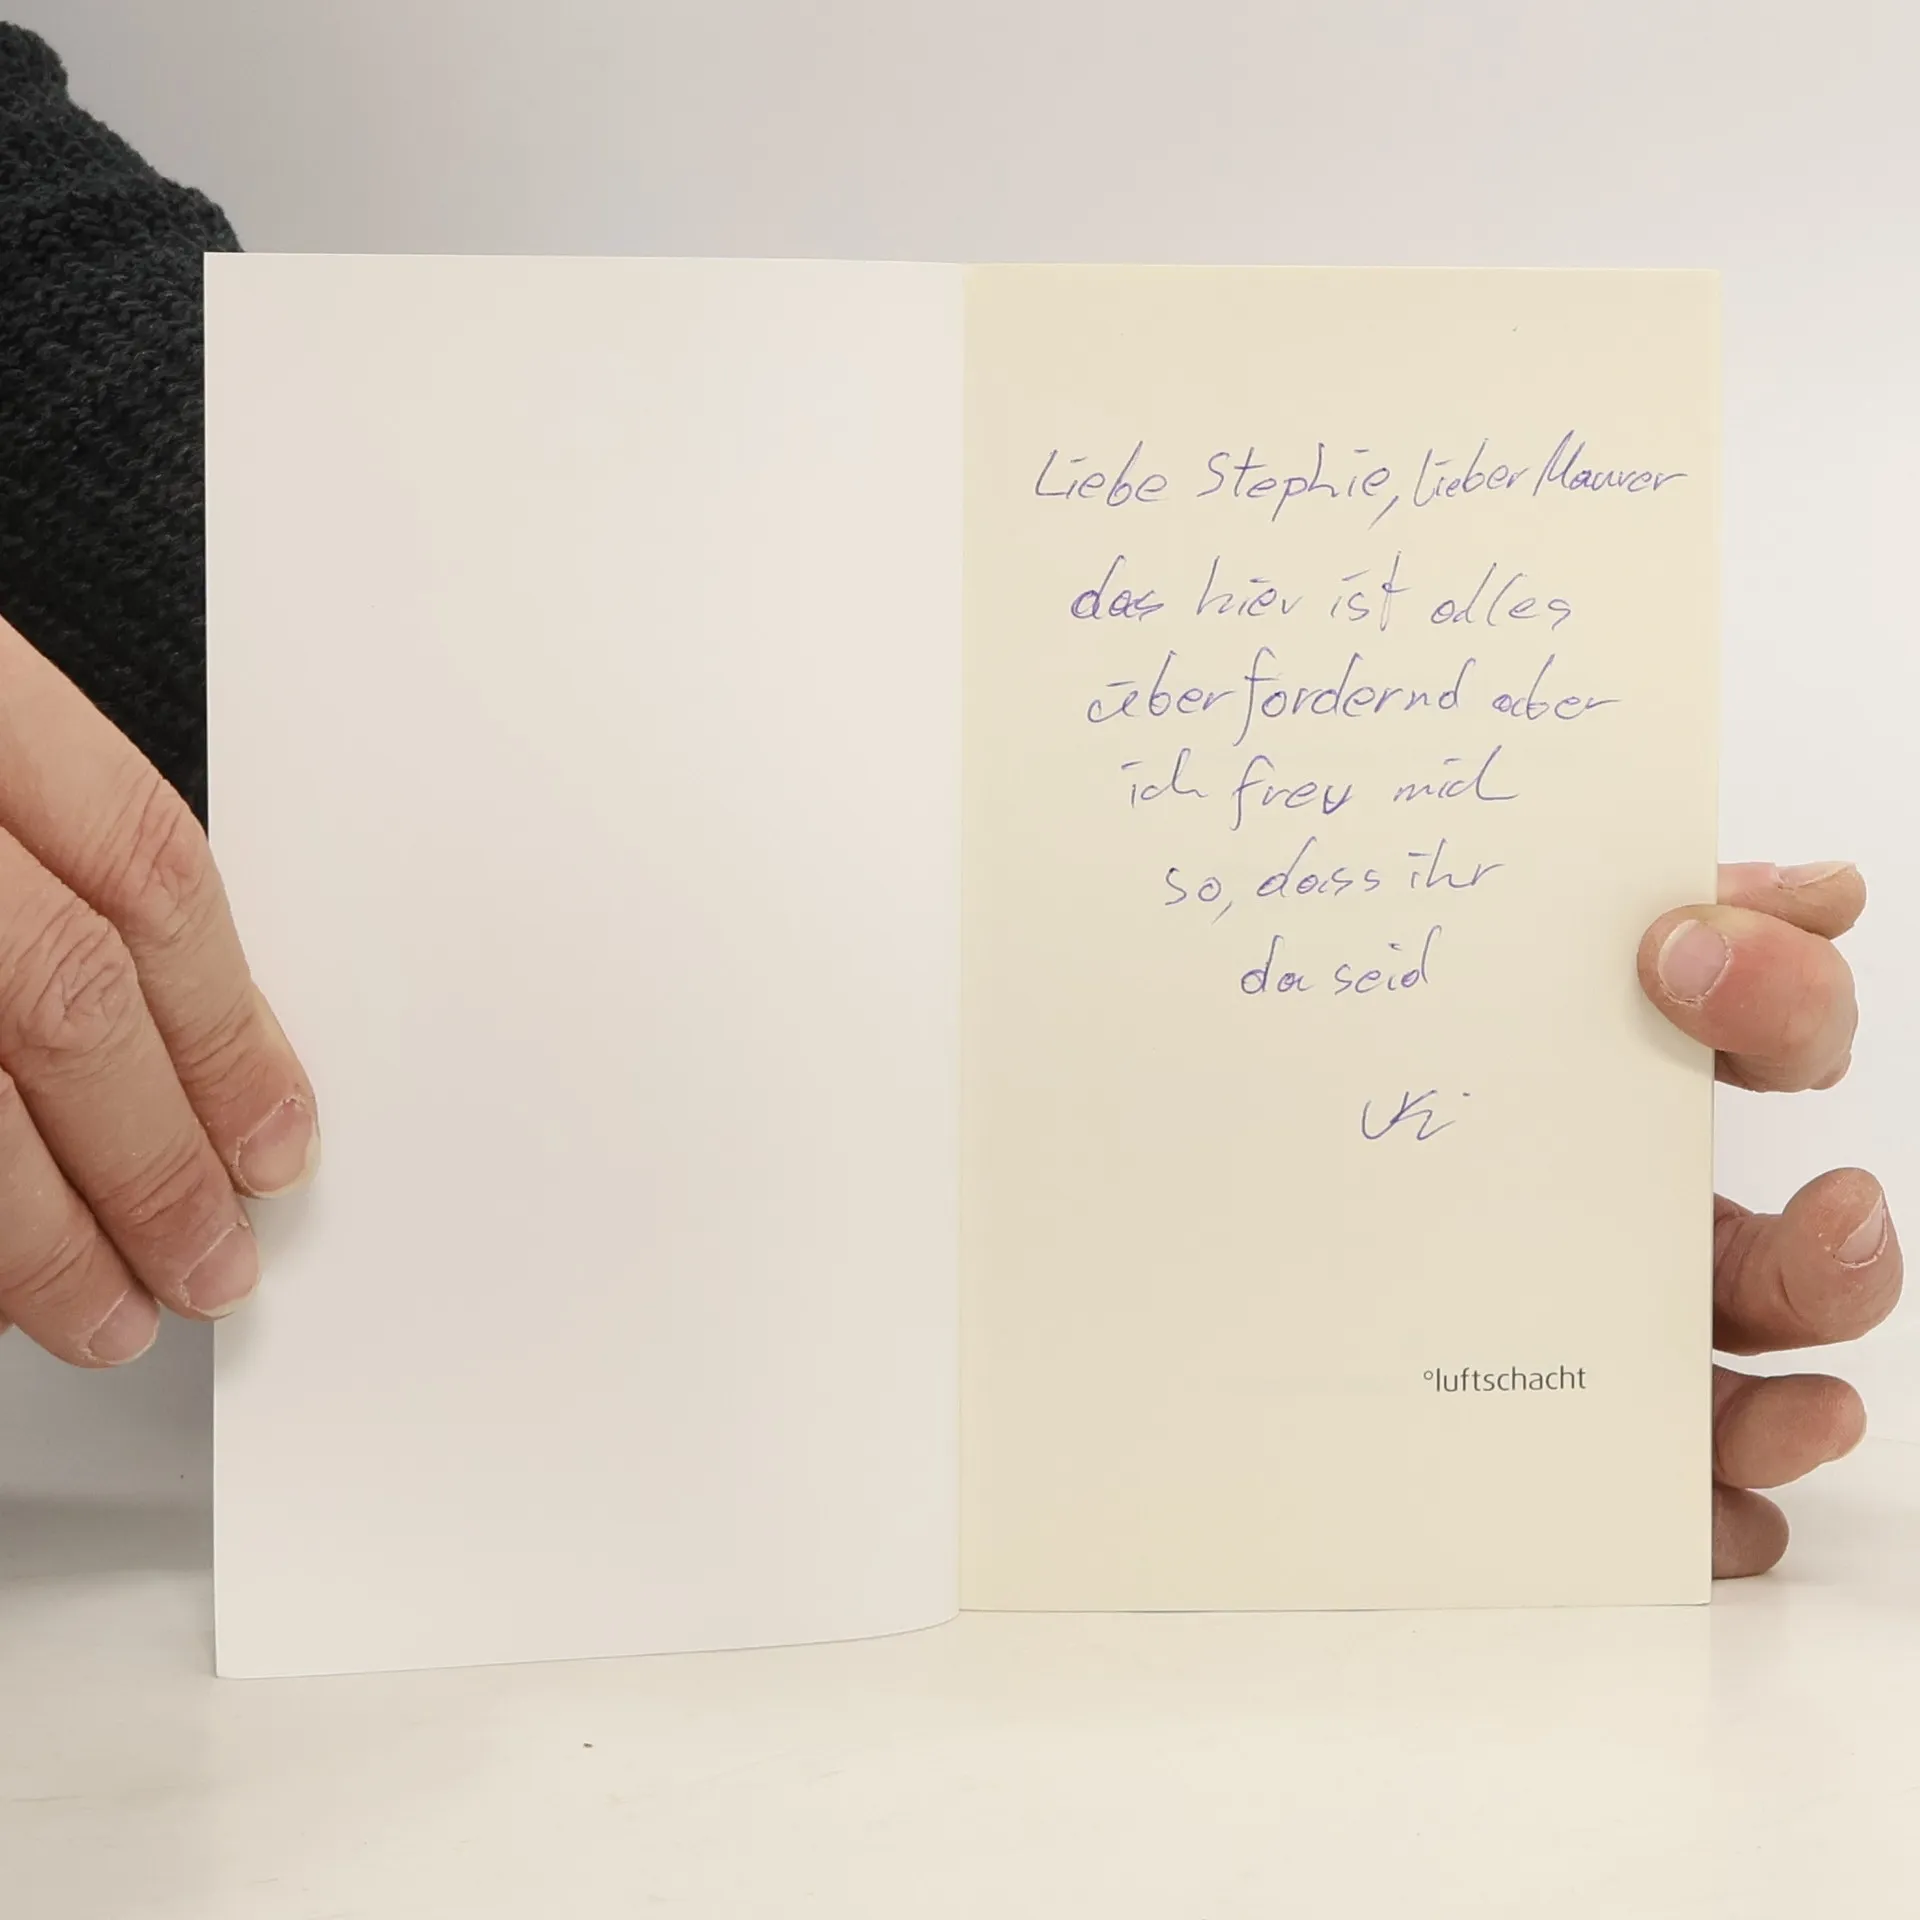 Liebe Stephie, lieber Maurer
das hier ist alles
überfordernd aber
ich freu mich
so, dass ihr
da seid
°luftschacht